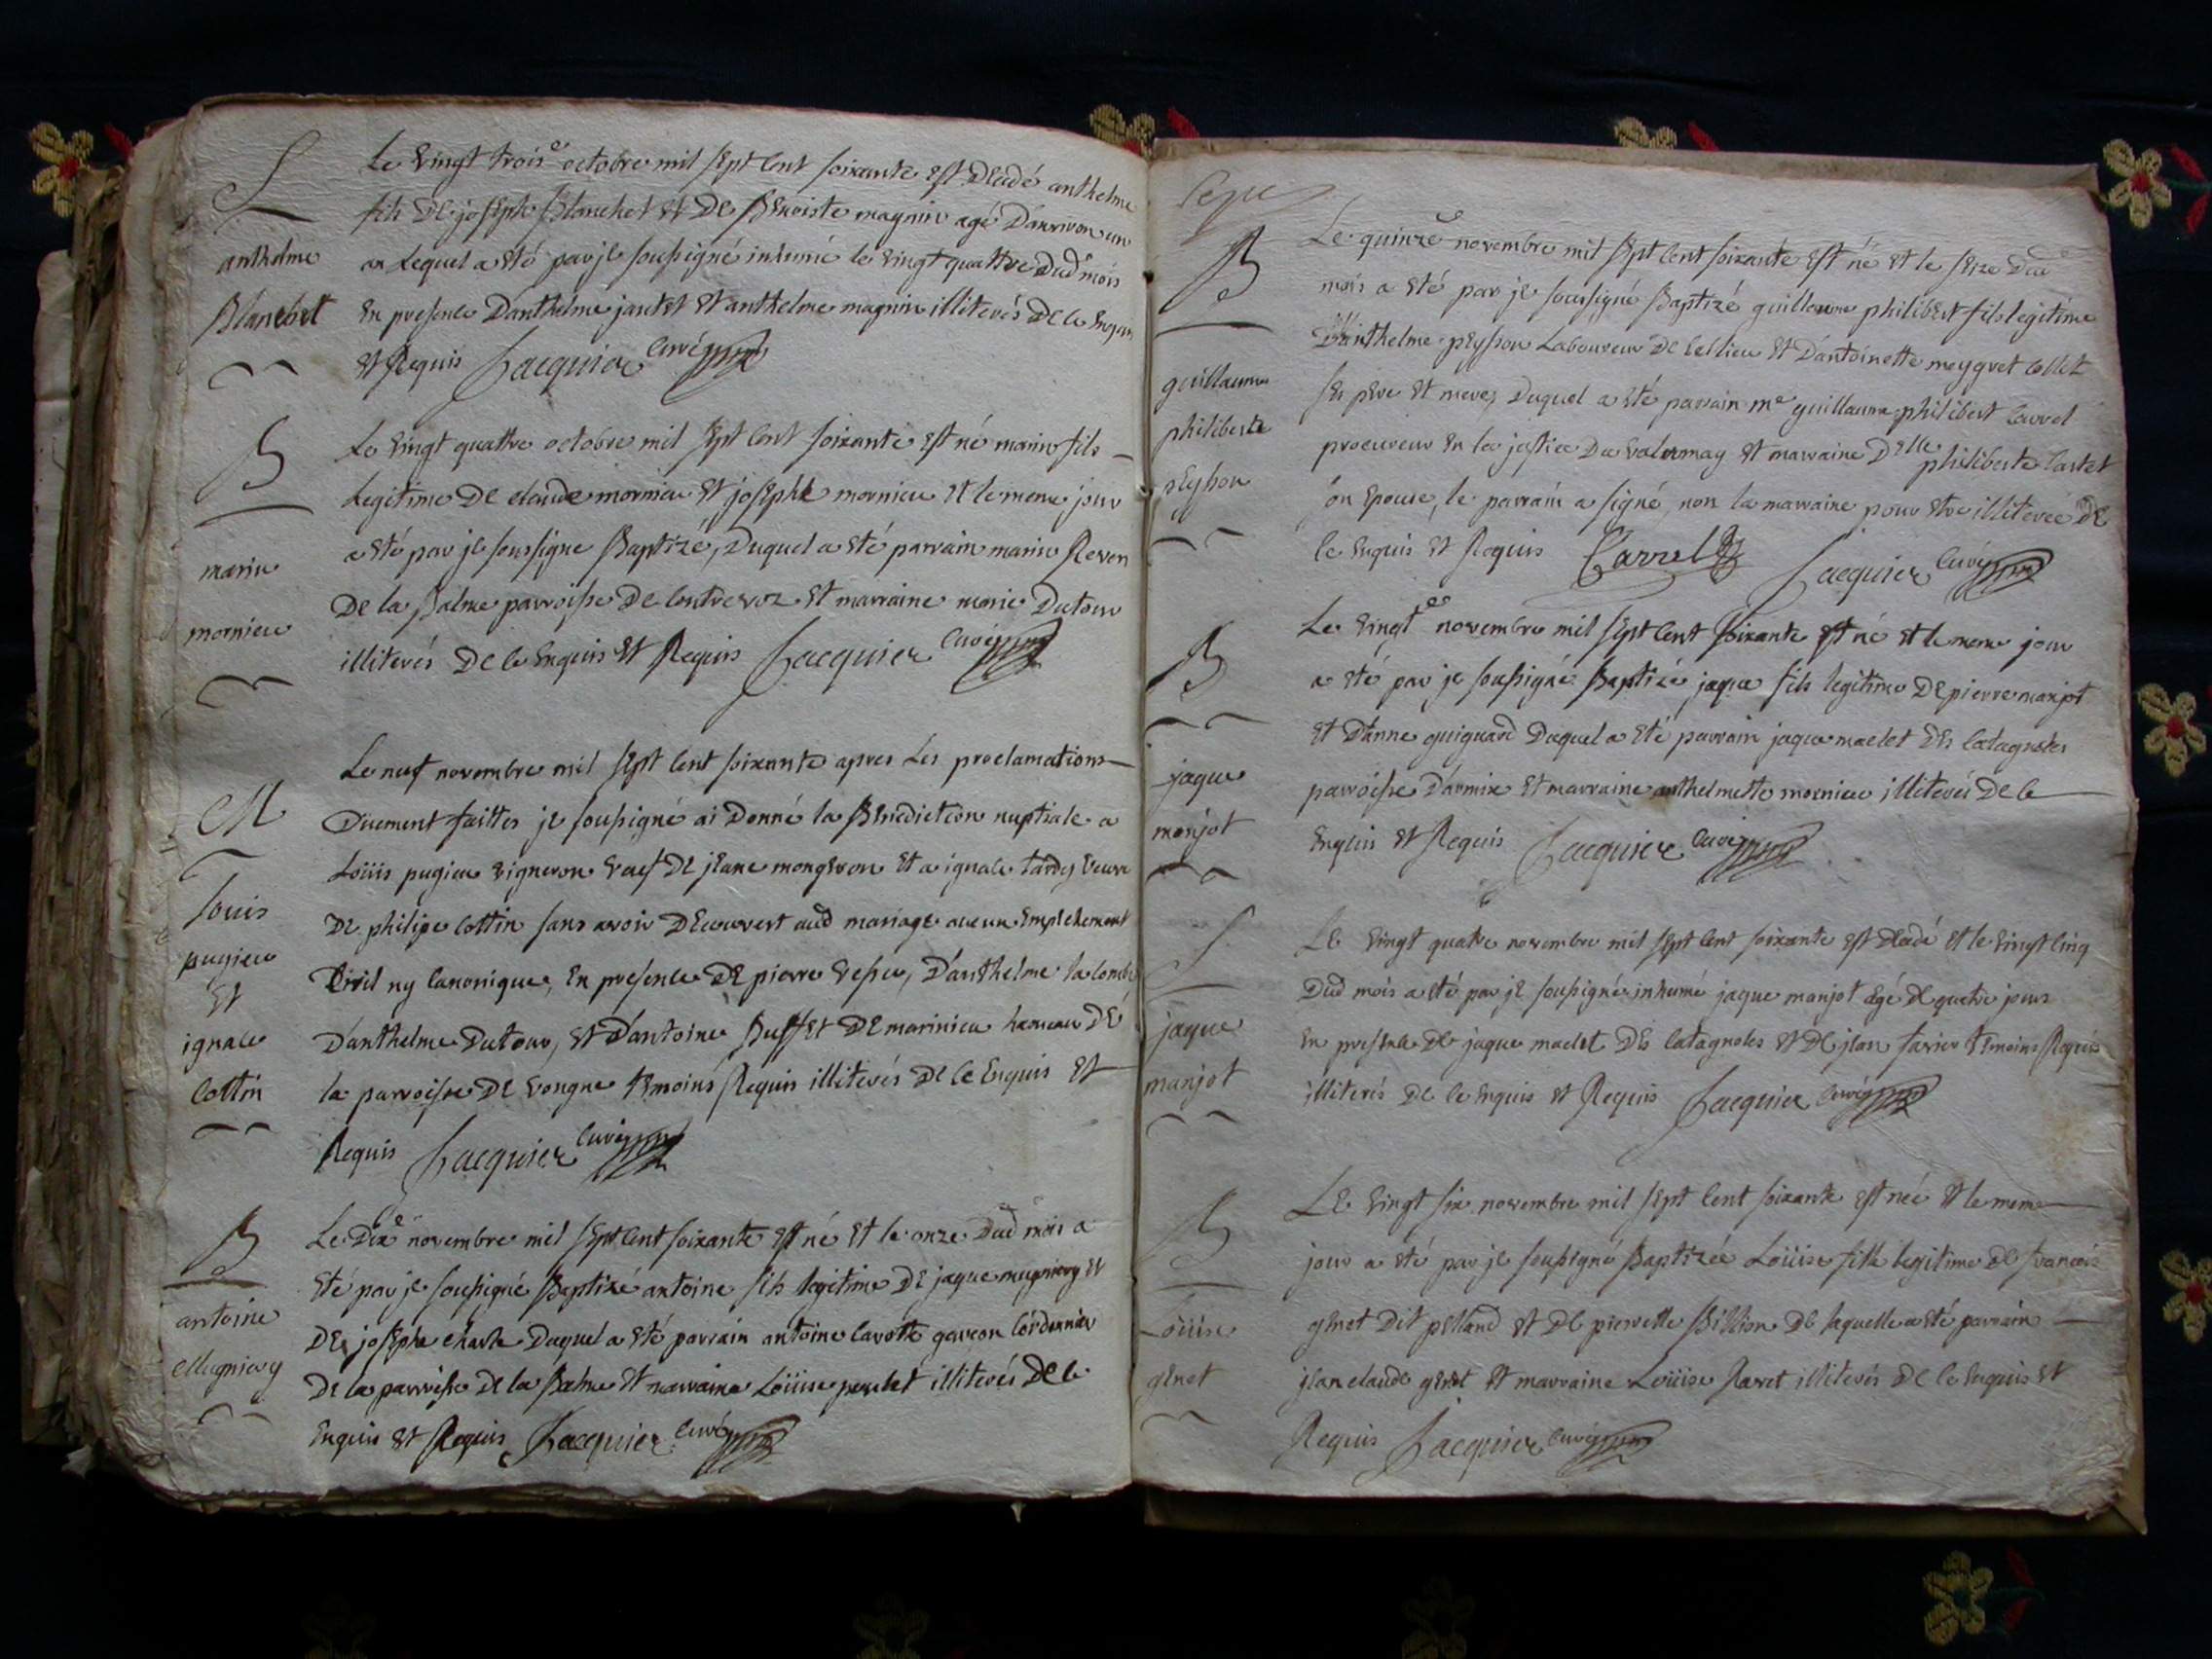 S
anthelme
Blanchet
Le vingt trois.e octobre mil sept cent soixante est decedé anthelme
fils de joseph Blanchet et de Benoiste magnin agé d'environ un
an Lequel a eté par je soussigné inhumé le vingt quattre dud mois
en presence d'anthelme jantet et anthelme magnin illiterés de ce enquis
et Requis Jacquier curé
B
marin
mornieu
Le vingt quattre octobre mil sept cent soixante est né marin fils
legitime de claude mornieu et josephte mornieu et le meme jour
a eté par je soussigne Baptizé, duquel a eté parrain marin Reven
de la Balme parroisse de contrevoz et marraine marie Dutour
illiterés de ce enquis et Requis Jacquier curé
M
Louis
pugieu
et
ignace
cottin
Le neuf novembre mil sept cent soixante apres Les proclamations
duement faittes je soussigné ai donné la Benediction nuptiale a
Loüis pugieu vigneron veuf de jeane mongeron et a ignace tardy veuve
de philipe cottin sans avoir decouvert aud mariage aucun empechement
civil ny canonique, en presence de pierre vesseu, d'anthelme lacombe
d'anthelme dutour, et d'antoine Buffet de marinieu hameau de
la parroisse de vongne temoins Requis illiterés de ce enquis et
Requis Jacquier curé
B
antoine
Mugniery
Le dix.e novembre mil sept cent soixante est né et le onze dud mois a
eté par je soussigné Baptizé antoine fils legitime de jaque mugniery et
de josephe charle duquel a eté parrain antoine cavotte garcon cordonnier
de la parroisse de la Balme et marraine Loüise peschet illiterés de ce
enquis et Requis Jacquier curé
B
guillaume
philiberte
peysson
Le quinze.e novembre mil sept cent soixante est né et le seize dud
mois a eté par je soussigné Baptizé guillaume philibert fils legitime
D'anthelme peysson Laboureur de ce lieu et d'antoinette meygret collet
ses pere et mere, duquel a eté parrain m.e guillaume philibert carrel
procureur en la justice du valromay et marraine D.elle philiberte castet
son epouse, le parrain a signé, non la marraine pour etre illiterée de
ce enquis et Requis Carrel Jacquier curé
B
jaque
monjot
Le vingt.e novembre mil sept cent soixante est né et le meme jour
a eté par je soussigné Baptizé jaque fils legitime de pierre manjot
et d'anne guiguard duquel a eté parrain jaque maclet des catagnoles
parroisse d'armix et marraine anthelmette mornieu illiterés de ce
enquis et Requis Jacquier curé
S
jaque
manjot
Le vingt quatre novembre mil sept cent soixante est decedé et le vingt cinq
dud mois a eté par je soussigné inhumé jaque manjot agé de quatre jours
en presence de jaque maclet des catagnoles et de jean favier temoins Requis
illiterés de ce enquis et Requis Jacquier curé
B
Loüise
genet
Le vingt six novembre mil sept cent soixante est neé et le meme
jour a eté par je soussigné Baptizée Loüise fille legitime de francois
genet dit pelland et de pierrette Billion de laquelle a eté parrain
jean claude genet et marraine Loüise Ravet illiterés de ce enquis et
Requis Jacquier curé